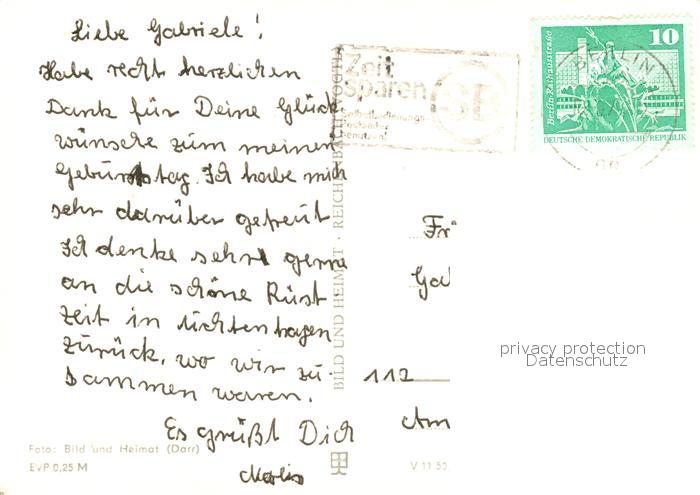 Liebe Gabriele!
Habe recht herzlichen
Dank für Deine Glück-
wünsche zum meinen
Geburtstag. Ich habe mich
sehr darüber gefreut
Ich denke sehr gerne
an die schöne Rüst
zeit in Lichtenhagen
zurück, wo wir zu-
sammen waren.
Es grüßt Dich
Foto: Bild und Heimat (Darr)
EVP 0,25 M
BILD UND HEIMAT · REICHENBACH
Zeit
sparen
SB
Selbstbedienungs
BERLIN
10
Berlin-Rathausstraße
DEUTSCHE DEMOKRATISCHE REPUBLIK
Fr
Ga
112
Am
V 11 50
privacy protection
Datenschutz